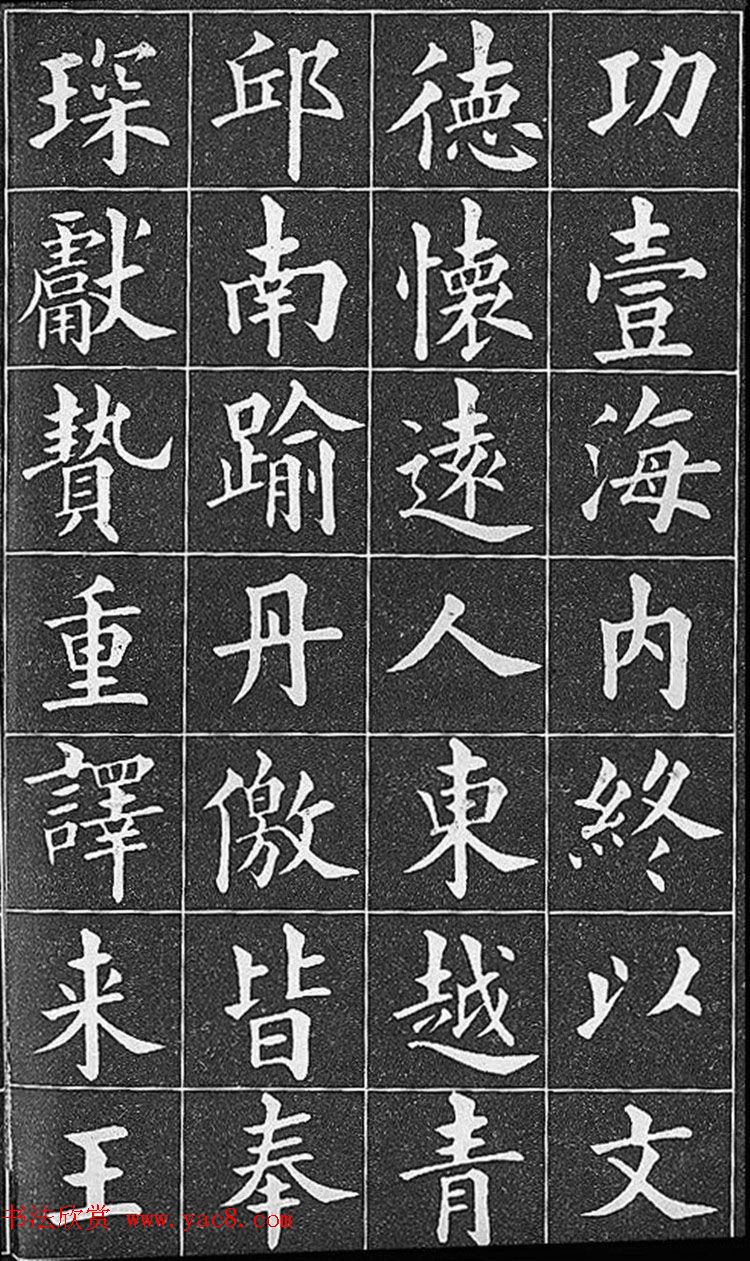 功壹海内終以文
徳懷遠人東越青
邱南踰丹儌皆奉
琛獻贄重譯来王
书法欣赏 www.yac8.com